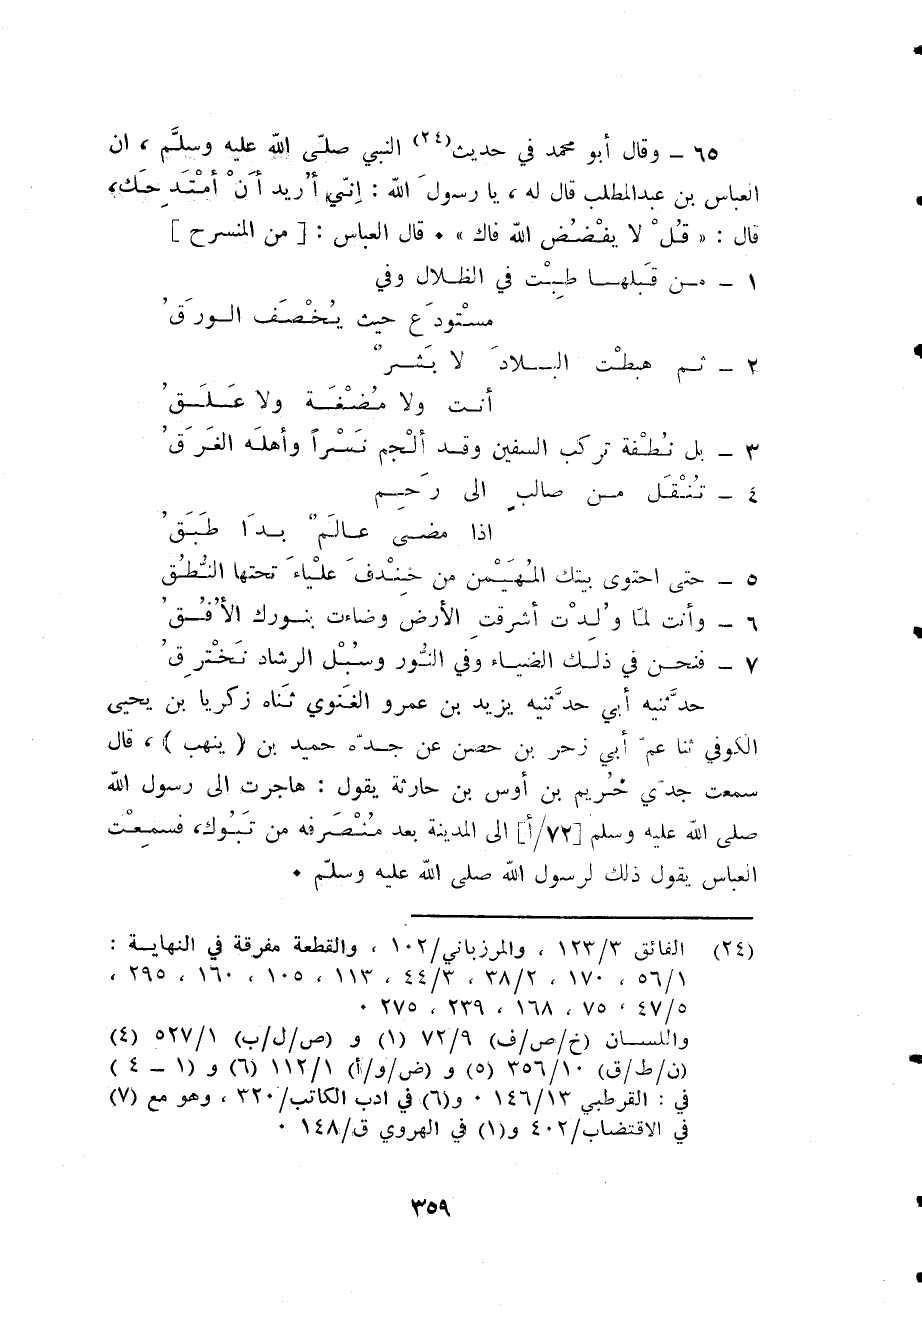 ٦٥ ـ وقال أبو محمد في حديث(٢٤) النبي صلّى الله عليه وسلَّم ، ان
العباس بن عبدالمطلب قال له ، يا رسولَ الله : إنّي أُريد أَنْ أمْتَدِحَك،
قال : « قُلْ لا يفْضُض الله فاك » ٠ قال العباس : [ من المنسرح ]
١ ـ مـن قَبلهـا طِبْت في الظلال وفي
مسْتودَع حيث يُخْصَف الـورَقُ
٢ ـ ثـم هبطْت البـلادَ لا بَشَـرٌ
أنت ولا مُضْغَـة ولا عَلَـقُ
٣ ـ بل نُطْفة تركب السفين وقـد ألْجم نَسْراً وأهلَه الغَرَقُ
٤ ـ تُنْقَل مـن صالبٍ الى رَحـم
اذا مضـى عالَمٌ بـدَا طَبَقُ
٥ ـ حتى احتوى بيتك المُهَيْمن من خِنْدفَ علْياءَ تحتها النُّطُق
٦ ـ وأنت لمّا وُلِدْت أشرقتِ الأرض وضاءت بنـورك الأُفُقُ
٧ ـ فنحـن في ذلـك الضيـاء وفي النُّور وسُبُل الرشاد نَخْترِقُ
حدَّثنيه أبي حدَّثنيه يزيد بن عمرو الغَنوي ثَناه زكريا بن يحيى
الكوفي ثنا عمّ أبي زحر بن حصن عن جـدّه حميد بن ( ينهب ) ، قال
سمعت جدّي خُريم بن أوس بن حارثة يقول : هاجرت الى رسول الله
صلى الله عليه وسلم [٧٢/أ] الى المدينة بعد مُنْصَرفه من تَبُوك، فسمِعْت
العباس يقول ذلك لرسول الله صلى الله عليه وسلّم ٠
(٢٤) الفائق ١٢٣/٣ ، والمرزباني/١٠٢ ، والقطعة مفرقة في النهايـة :
٥٦/١ ، ١٧٠ ، ٣٨/٢ ، ٤٤/٣ ، ١١٣ ، ١٠٥ ، ١٦٠ ، ٢٩٥ ،
٤٧/٥ ، ٧٥ ، ١٦٨ ، ٢٣٩ ، ٢٧٥ ٠
واللسـان (خ/ص/ف) ٧٢/٩ (١) و (ص/ل/ب) ٥٢٧/١ (٤)
(ن/ط/ق) ٣٥٦/١٠ (٥) و (ض/و/أ) ١١٢/١ (٦) و (١ ـ ٤ )
في : القرطبي ١٤٦/١٣ ٠ و(٦) في ادب الكاتب/٣٢٠ ، وهو مع (٧)
في الاقتضـاب/٤٠٢ و(١) في الهروي ق/١٤٨ ٠
٣٥٩